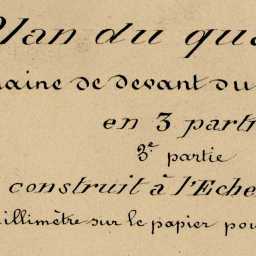 Plan du qua
maine de devant du
en 3 partr
3.e partie
construit à l'Eche
illimètre sur le papier pou